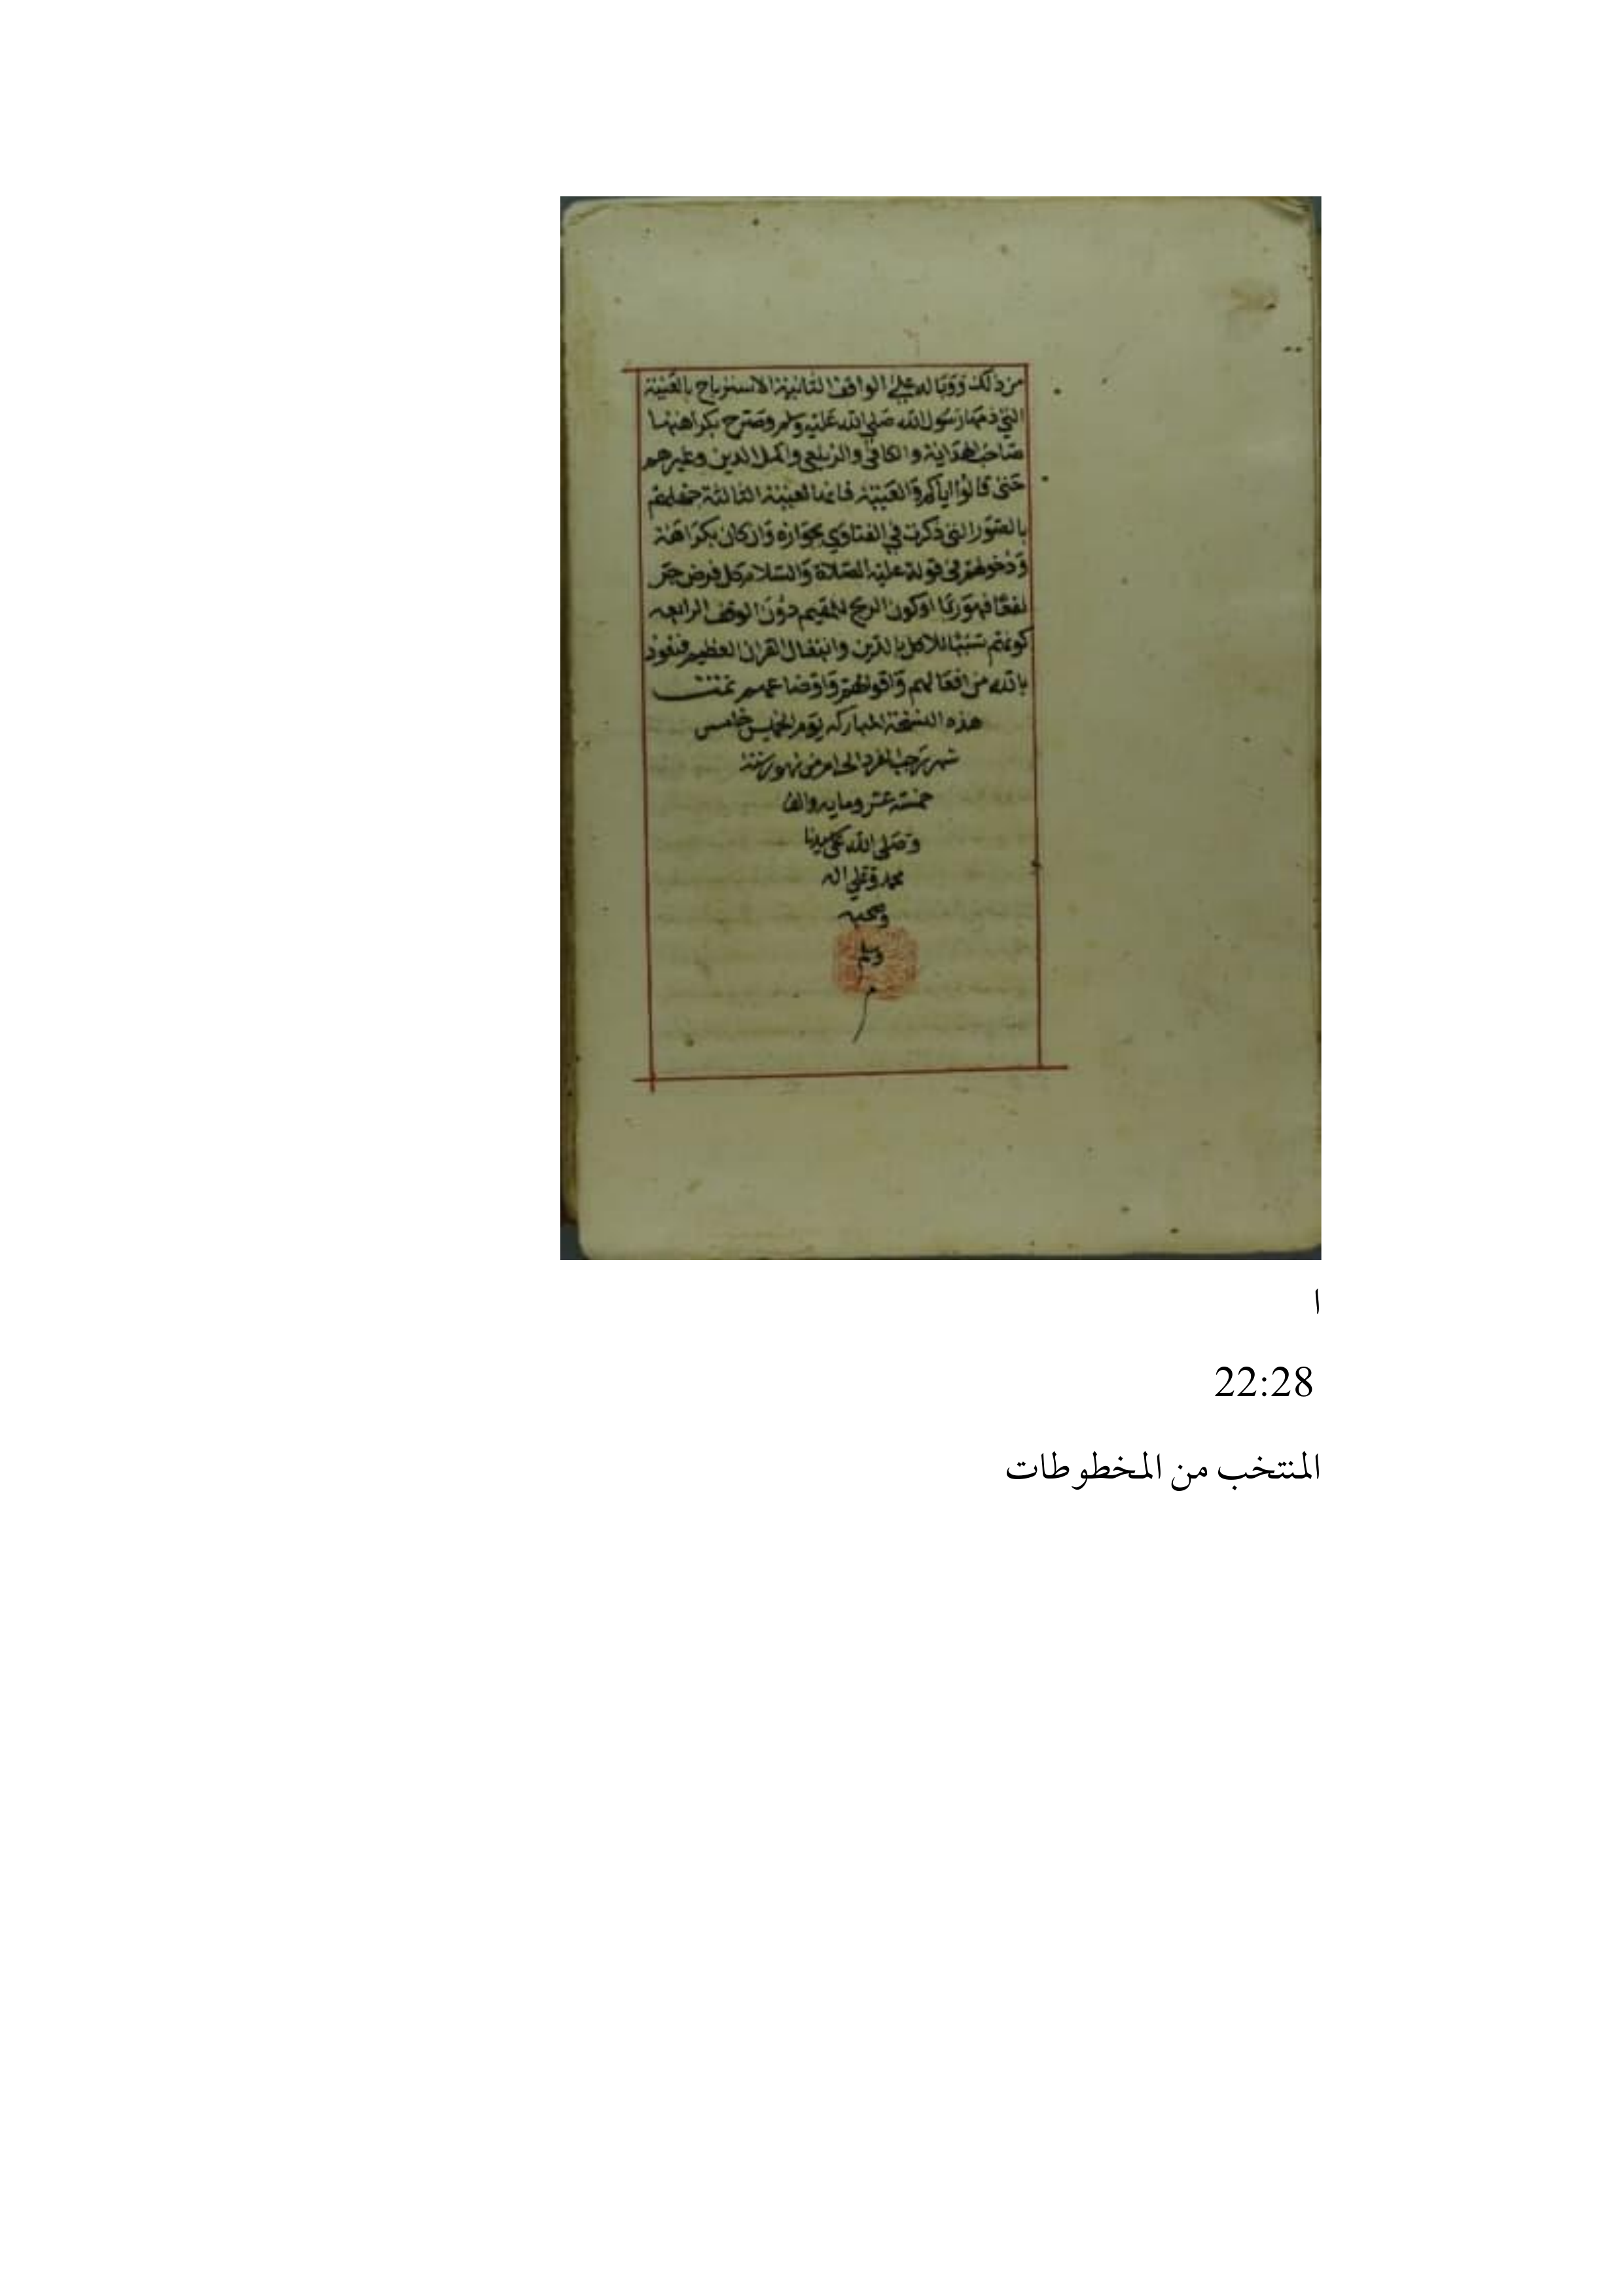 من ذلك ووباله على الواقف الثانية الاسترباح بالعينة
التي ذمها رسول الله صلى الله عليه وسلم وصرح بكراهتها
صاحب الهداية والكافي والزيلعي واكمل الدين وغيرهم
حتى قالوا اياكم والعينة فانها لعينة الثالثة جهلهم
بالصور التي ذكرت في الفتاوي بجوازه وان كان بكراهة
ودخولهم في قوله عليه الصلاة والسلام كل قرض جر
نفعا فهو ربا او كون الربح للمقيم دون الوقف الرابعه
كونهم تسببا للاكل بالدين وابتذال القران العظيم فنعوذ
بالله من افعالهم واقوالهم واوضاعهم تمت
هذه النسخة المباركه يوم الخميس خامس
شهر رجب الفرد الحرام من شهور سنة
خمسة عشر ومايه والف
وصلى الله على سيدنا
محمد وعلى اله
وصحبه
وسلم
م
ا
22:28
المنتخب من المخطوطات